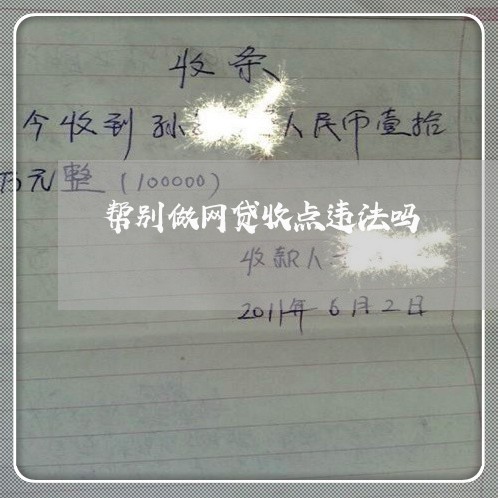 收条
今收到孙 人民币壹拾
万元整(100000)
帮别做网贷收点违法吗
收款人
2011年6月2日